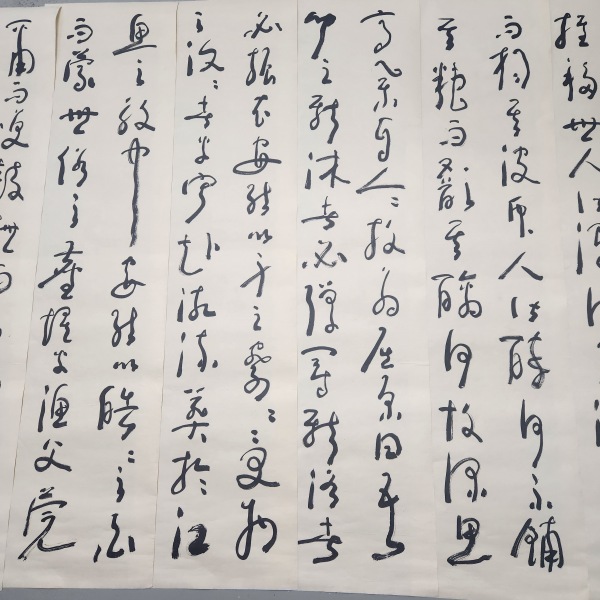 推移世人皆濁何
而揚其波衆人皆醉何不餔
其糟而歠其醨何故深思
高舉自令放為屈原曰吾
聞之新沐者必彈冠新浴者
必振衣安能以身之察〻受物
之汶〻者乎寧赴湘流葬於江
魚之腹中安能以皓〻之白
而蒙世俗之塵埃乎漁父莞
爾而笑鼓枻而